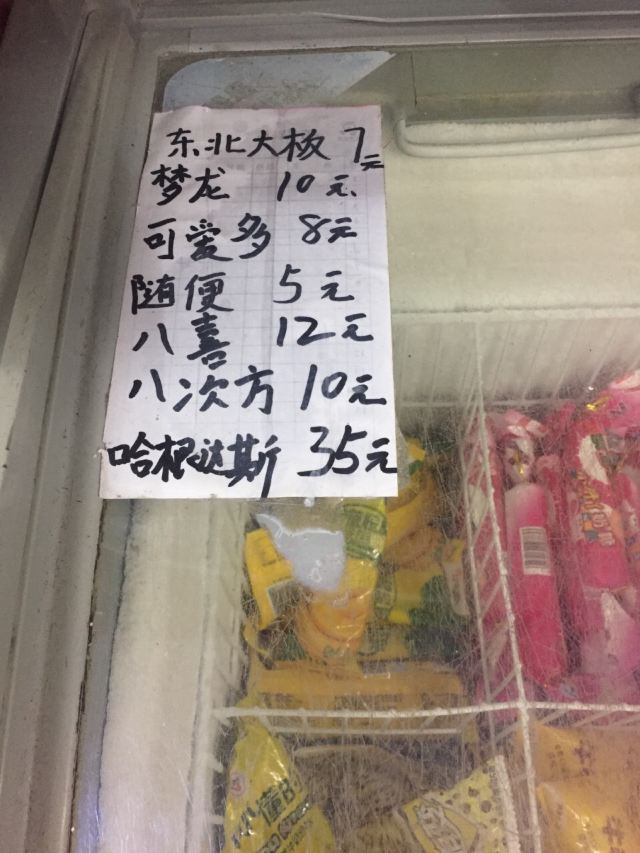 东北大板 7元
梦龙 10元
可爱多 8元
随便 5元
八喜 12元
八次方 10元
哈根达斯 35元